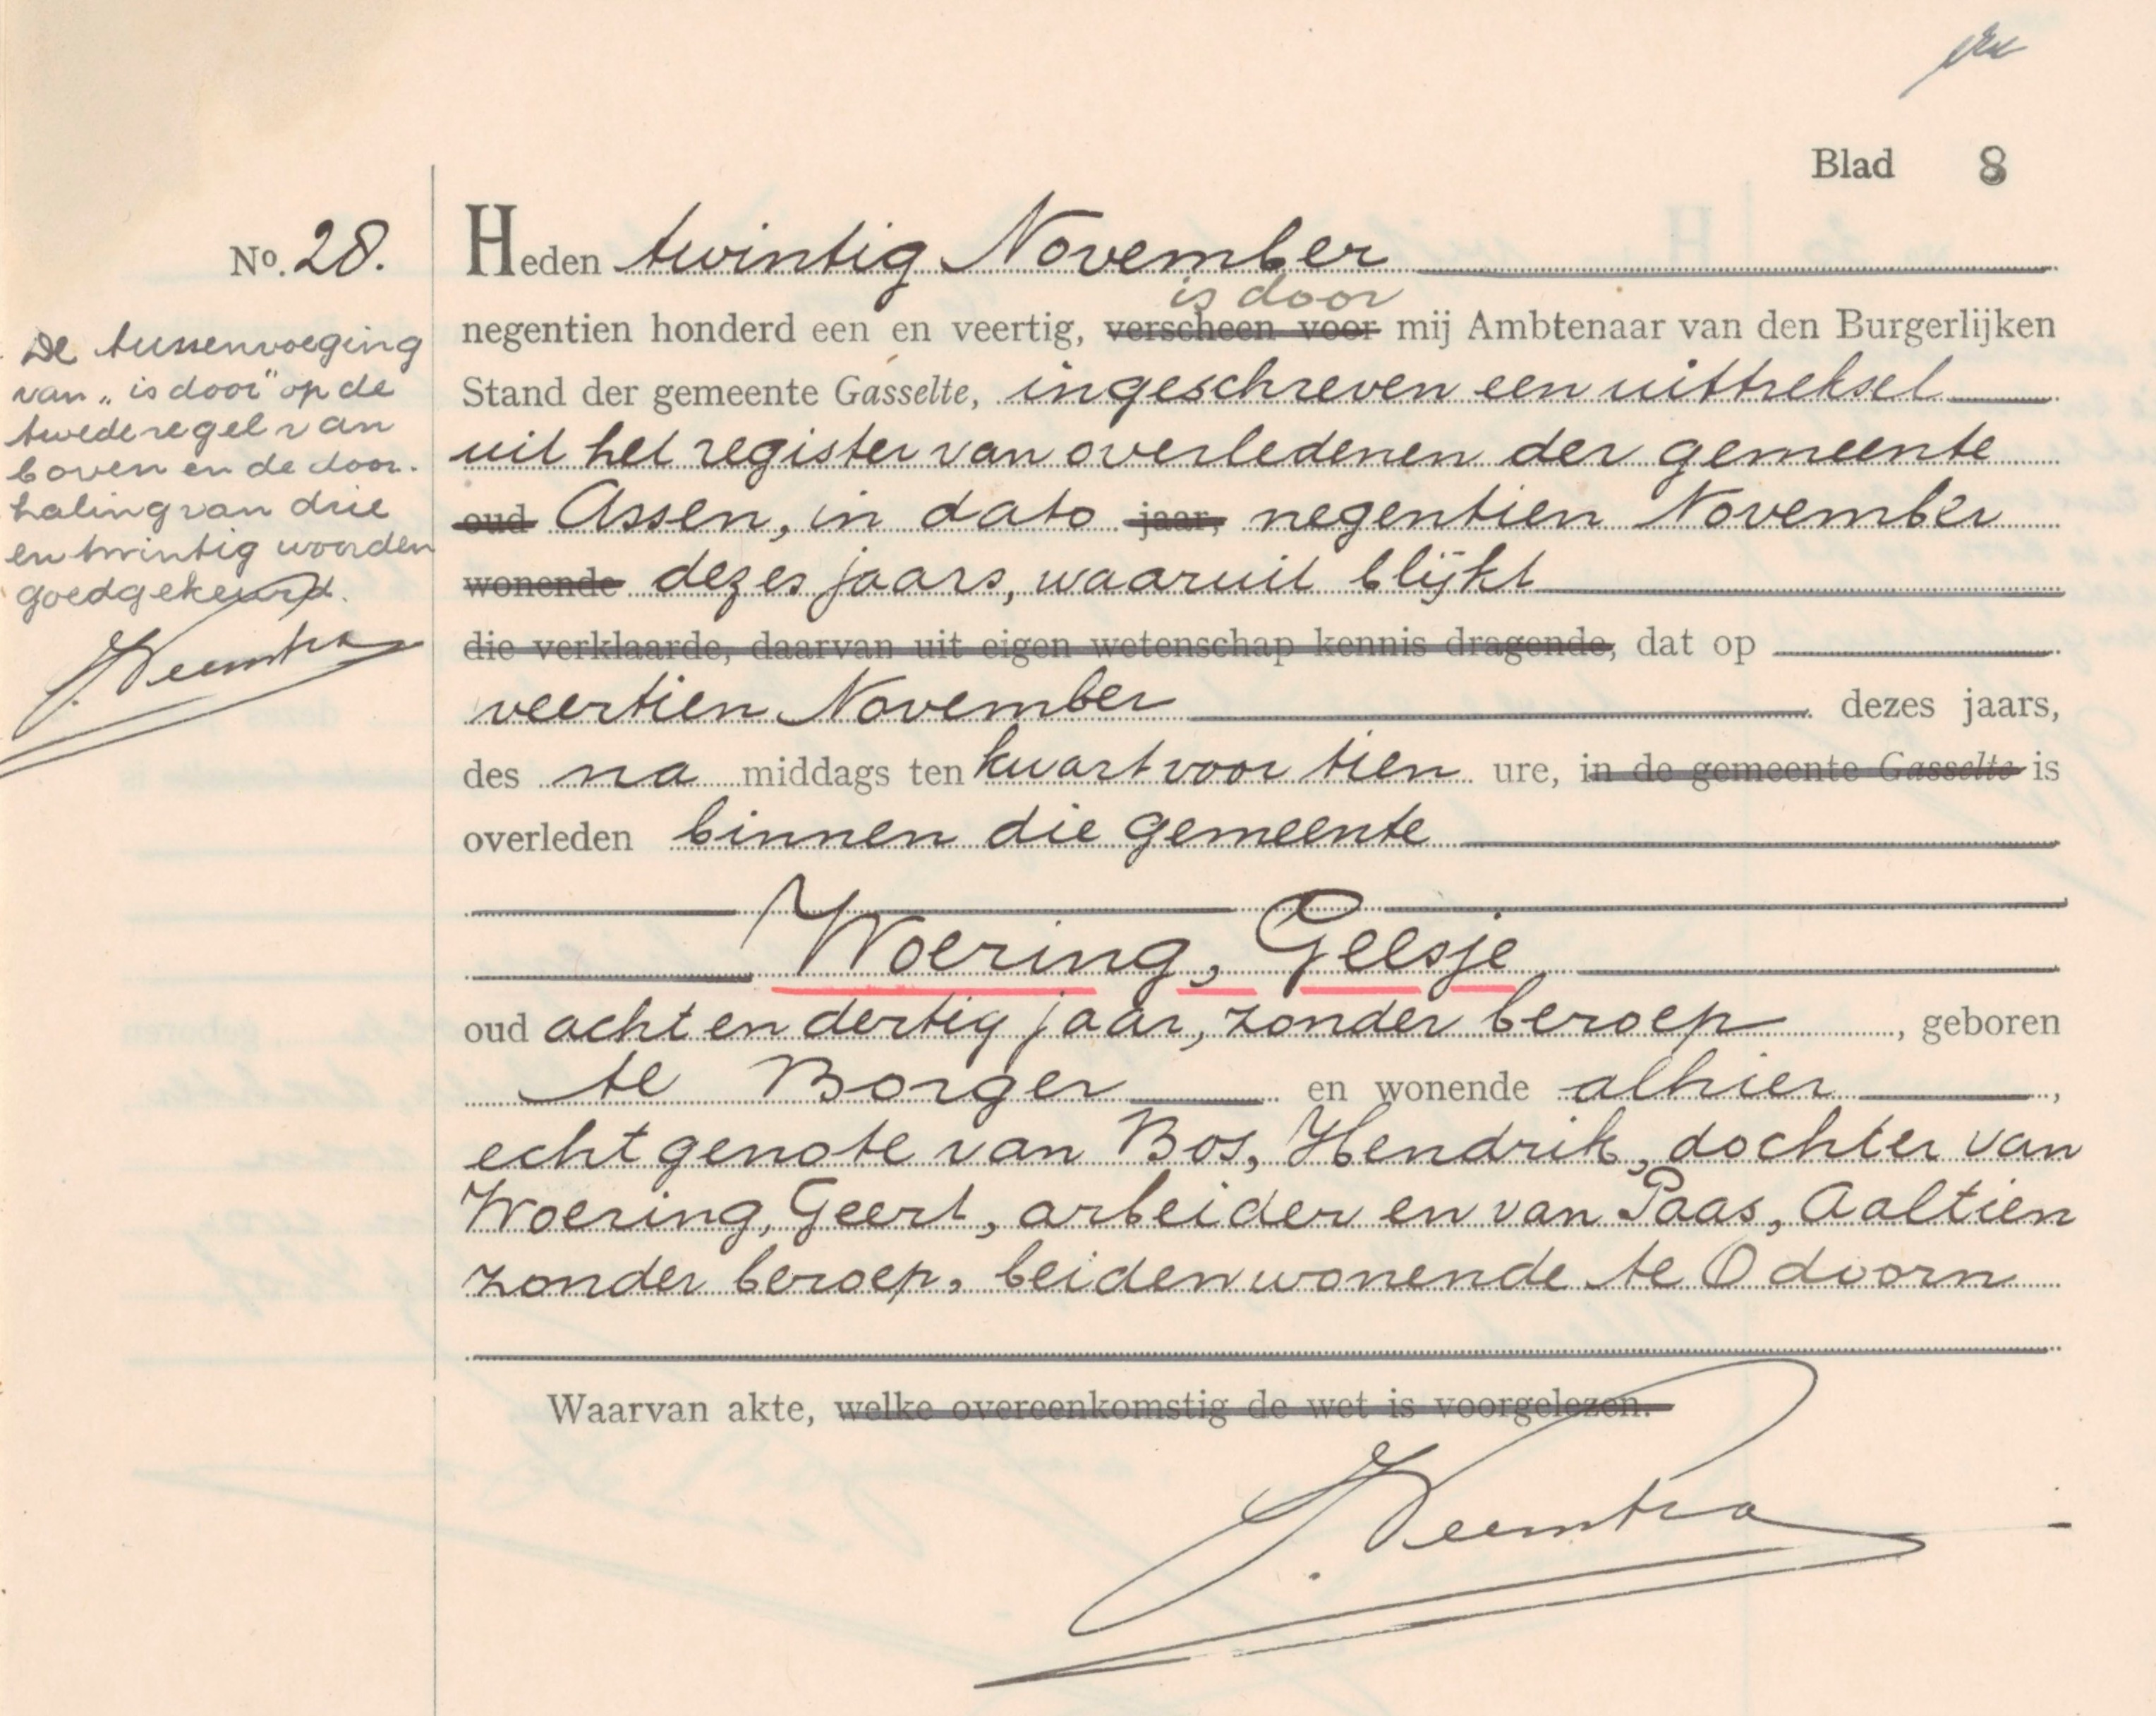 Blad 8
No. 28.
Heden twintig November
is door
negentien honderd een en veertig, verscheen voor mij Ambtenaar van den Burgerlijken
Stand der gemeente Gasselte, ingeschreven een uittreksel
uit het register van overledenen der gemeente
oud Assen, in dato jaar, negentien November
wonende dezes jaars, waaruit blijkt
die verklaarde, daarvan uit eigen wetenschap kennis dragende, dat op
veertien November dezes jaars,
des na middags ten kwart voor tien ure, in de gemeente Gasselte is
overleden binnen die gemeente
Woering, Geesje
oud acht en dertig jaar, zonder beroep, geboren
te Borger en wonende alhier,
echtgenote van Bos, Hendrik, dochter van
Woering, Geert, arbeider en van Paas, Aaltien
zonder beroep, beiden wonende te Odoorn
Waarvan akte, welke overeenkomstig de wet is voorgelezen.
De tussenvoeging
van „is door" op de
twede regel van
boven en de door-
haling van drie
en twintig woorden
goedgekeurd.